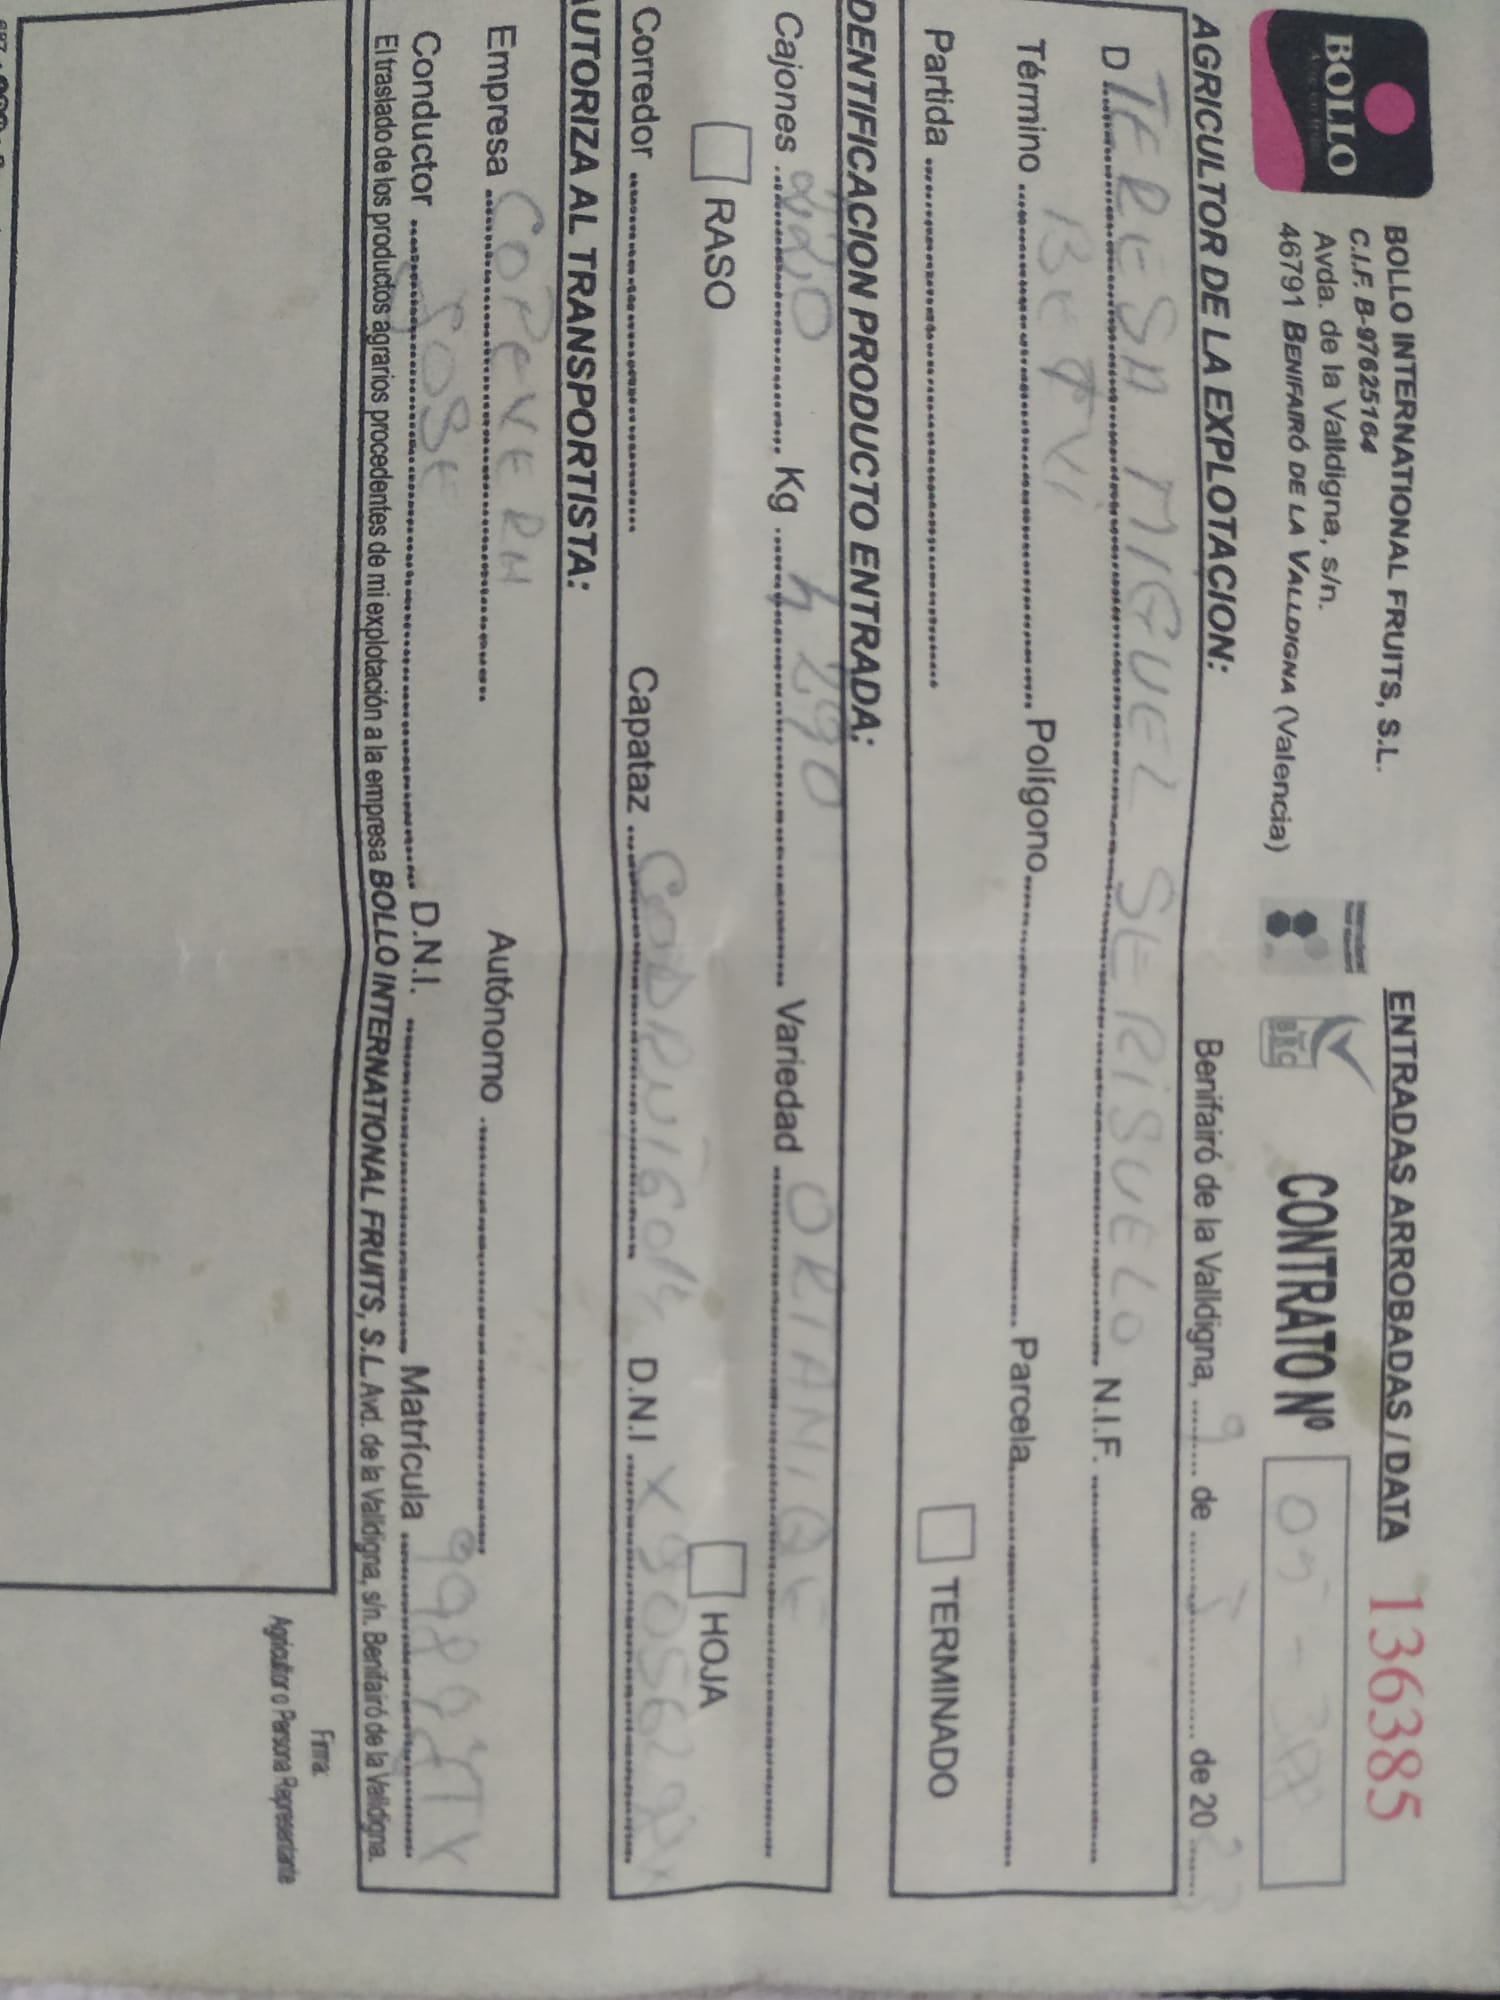 BOLLO
BOLLO INTERNATIONAL FRUITS, S.L.
C.I.F. B-97625164
Avda. de la Valldigna, s/n.
46791 BENIFAIRÓ DE LA VALLDIGNA (Valencia)
ENTRADAS ARROBADAS / DATA 136385
BRC
CONTRATO Nº
AGRICULTOR DE LA EXPLOTACION:
Benifairó de la Valldigna, 9 de 3 de 2023
D TERESA MIGUEL SERISUELO N.I.F.
Término Polígono Parcela
Partida TERMINADO
DENTIFICACION PRODUCTO ENTRADA:
Cajones 220 Kg 4290 Variedad ORTANIQE
RASO HOJA
Corredor Capataz D.N.I
AUTORIZA AL TRANSPORTISTA:
Empresa COPEVERH Autónomo
Conductor JOSE D.N.I. Matrícula
El traslado de los productos agrarios procedentes de mi explotación a la empresa BOLLO INTERNATIONAL FRUITS, S.L. Avd. de la Valldigna, s/n. Benifairó de la Valldigna.
Firma:
Agricultor o Persona Representante